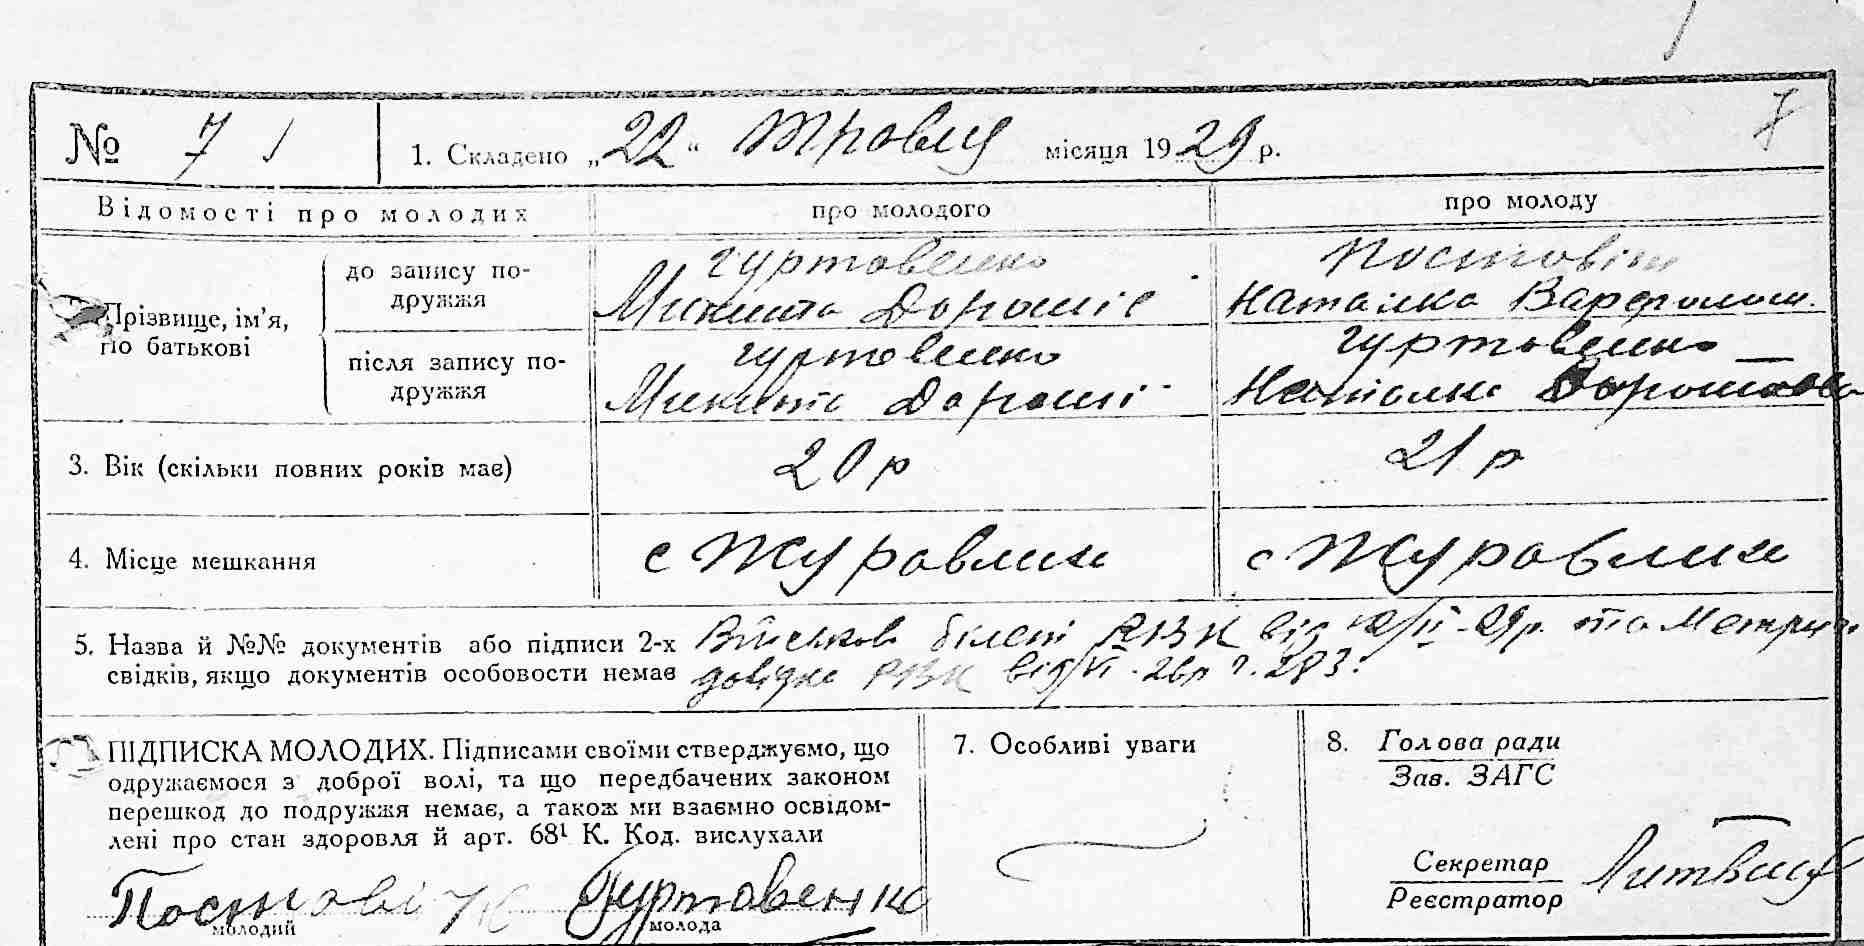 № 7 1. Складено „22“ Травня місяця 1929 р. 7
Відомості про молодих про молодого про молоду
до запису по- Гуртовенко Постовіт
дружжя Микита Дорошіє Наталка Варфолом.
Прізвище, ім’я,
по батькові
після запису по- Гуртовенко Гуртовенко
дружжя Микита Дороші Наталка
3. Вік (скільки повних років має) 20 р 21 р
4. Місце мешкання с Журавлин с Журавлин
5. Назва й №№ документів або підписи 2-х Військов білет РВК від -29р. та Метрич
свідків, якщо документів особовости немає довідка РВК від 283.
ПІДПИСКА МОЛОДИХ. Підписами своїми стверджуємо, що 7. Особливі уваги 8. Голова ради
одружаємося з доброї волі, та що передбачених законом Зав. ЗАГС
перешкод до подружжя немає, а також ми взаємно освідом-
лені про стан здоровля й арт. 68¹ К. Код. вислухали
Секретар Литвин
Реєстратор
Постовіт Н Гуртовенко
молодий молода